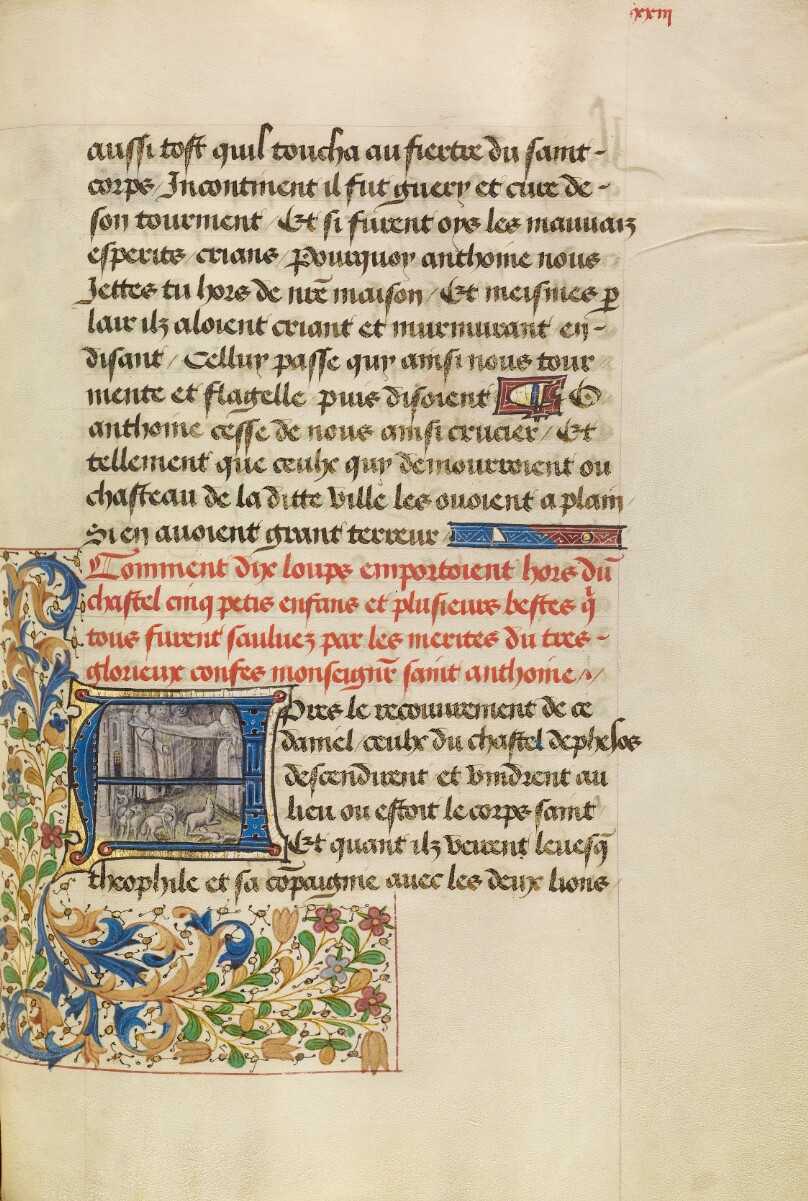 xxiii
aussi tost quil toucha au fiertre du saint-
corps / Incontinent il fut guery et cure de-
son tourment / Et si furent oys les mauuaiz
esperits crians / Pourquoy anthoine nous
Jettes tu hors de nr̃e maison / Et meismes ꝑ
lair ilz aloient criant et murmurant en-
disant / Celluy passe quy ainsi nous tour
mente et flagelle puis disoient O
anthoine cesse de nous ainsi crucier / Et
tellement que ceulx quy demourroient ou
chasteau de la ditte ville les ouoient a plain
Si en auoient grant terreur
Comment dix loups emportoient hors du
chastel cinq petis enfans et plusieurs bestes q̃
tous furent sauluez par les merites du tres-
glorieux confes monseignr̃ saint anthoine /
Apres le recouurement de ce
damel ceulx du chastel dephelos
descendirent et vindrent au
lieu ou estoit le corps saint
Et quant ilz veirent leuesq̃
theophile et sa cõpaignie auec les deux lions